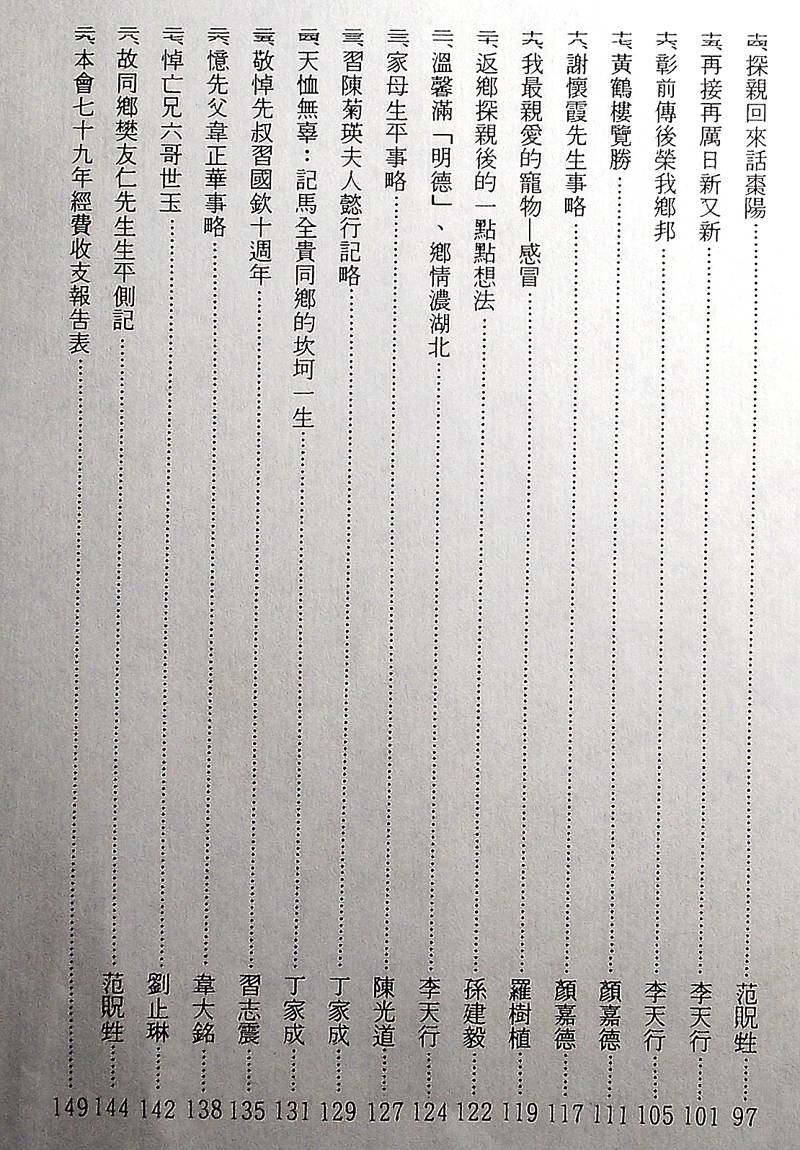 十四、探親回來話棗陽……范貺甡……97
十五、再接再厲日新又新……李天行……101
十六、彰前傳後榮我鄉邦……李天行……105
十七、黃鶴樓覽勝……顏嘉德……111
十八、謝懷霞先生事略……顏嘉德……117
十九、我最親愛的寵物—感冒……羅樹植……119
二十、返鄉探親後的一點點想法……孫建毅……122
二一、溫馨滿「明德」、鄉情濃湖北……李天行……124
二二、家母生平事略……陳光道……127
二三、習陳菊瑛夫人懿行記略……丁家成……129
二四、天恤無辜：記馬全貴同鄉的坎坷一生……丁家成……131
二五、敬悼先叔習國欽十週年……習志震……135
二六、憶先父韋正華事略……韋大銘……138
二七、悼亡兄六哥世玉……劉止琳……142
二八、故同鄉樊友仁先生生平側記……范貺甡……144
二九、本會七十九年經費收支報告表……149